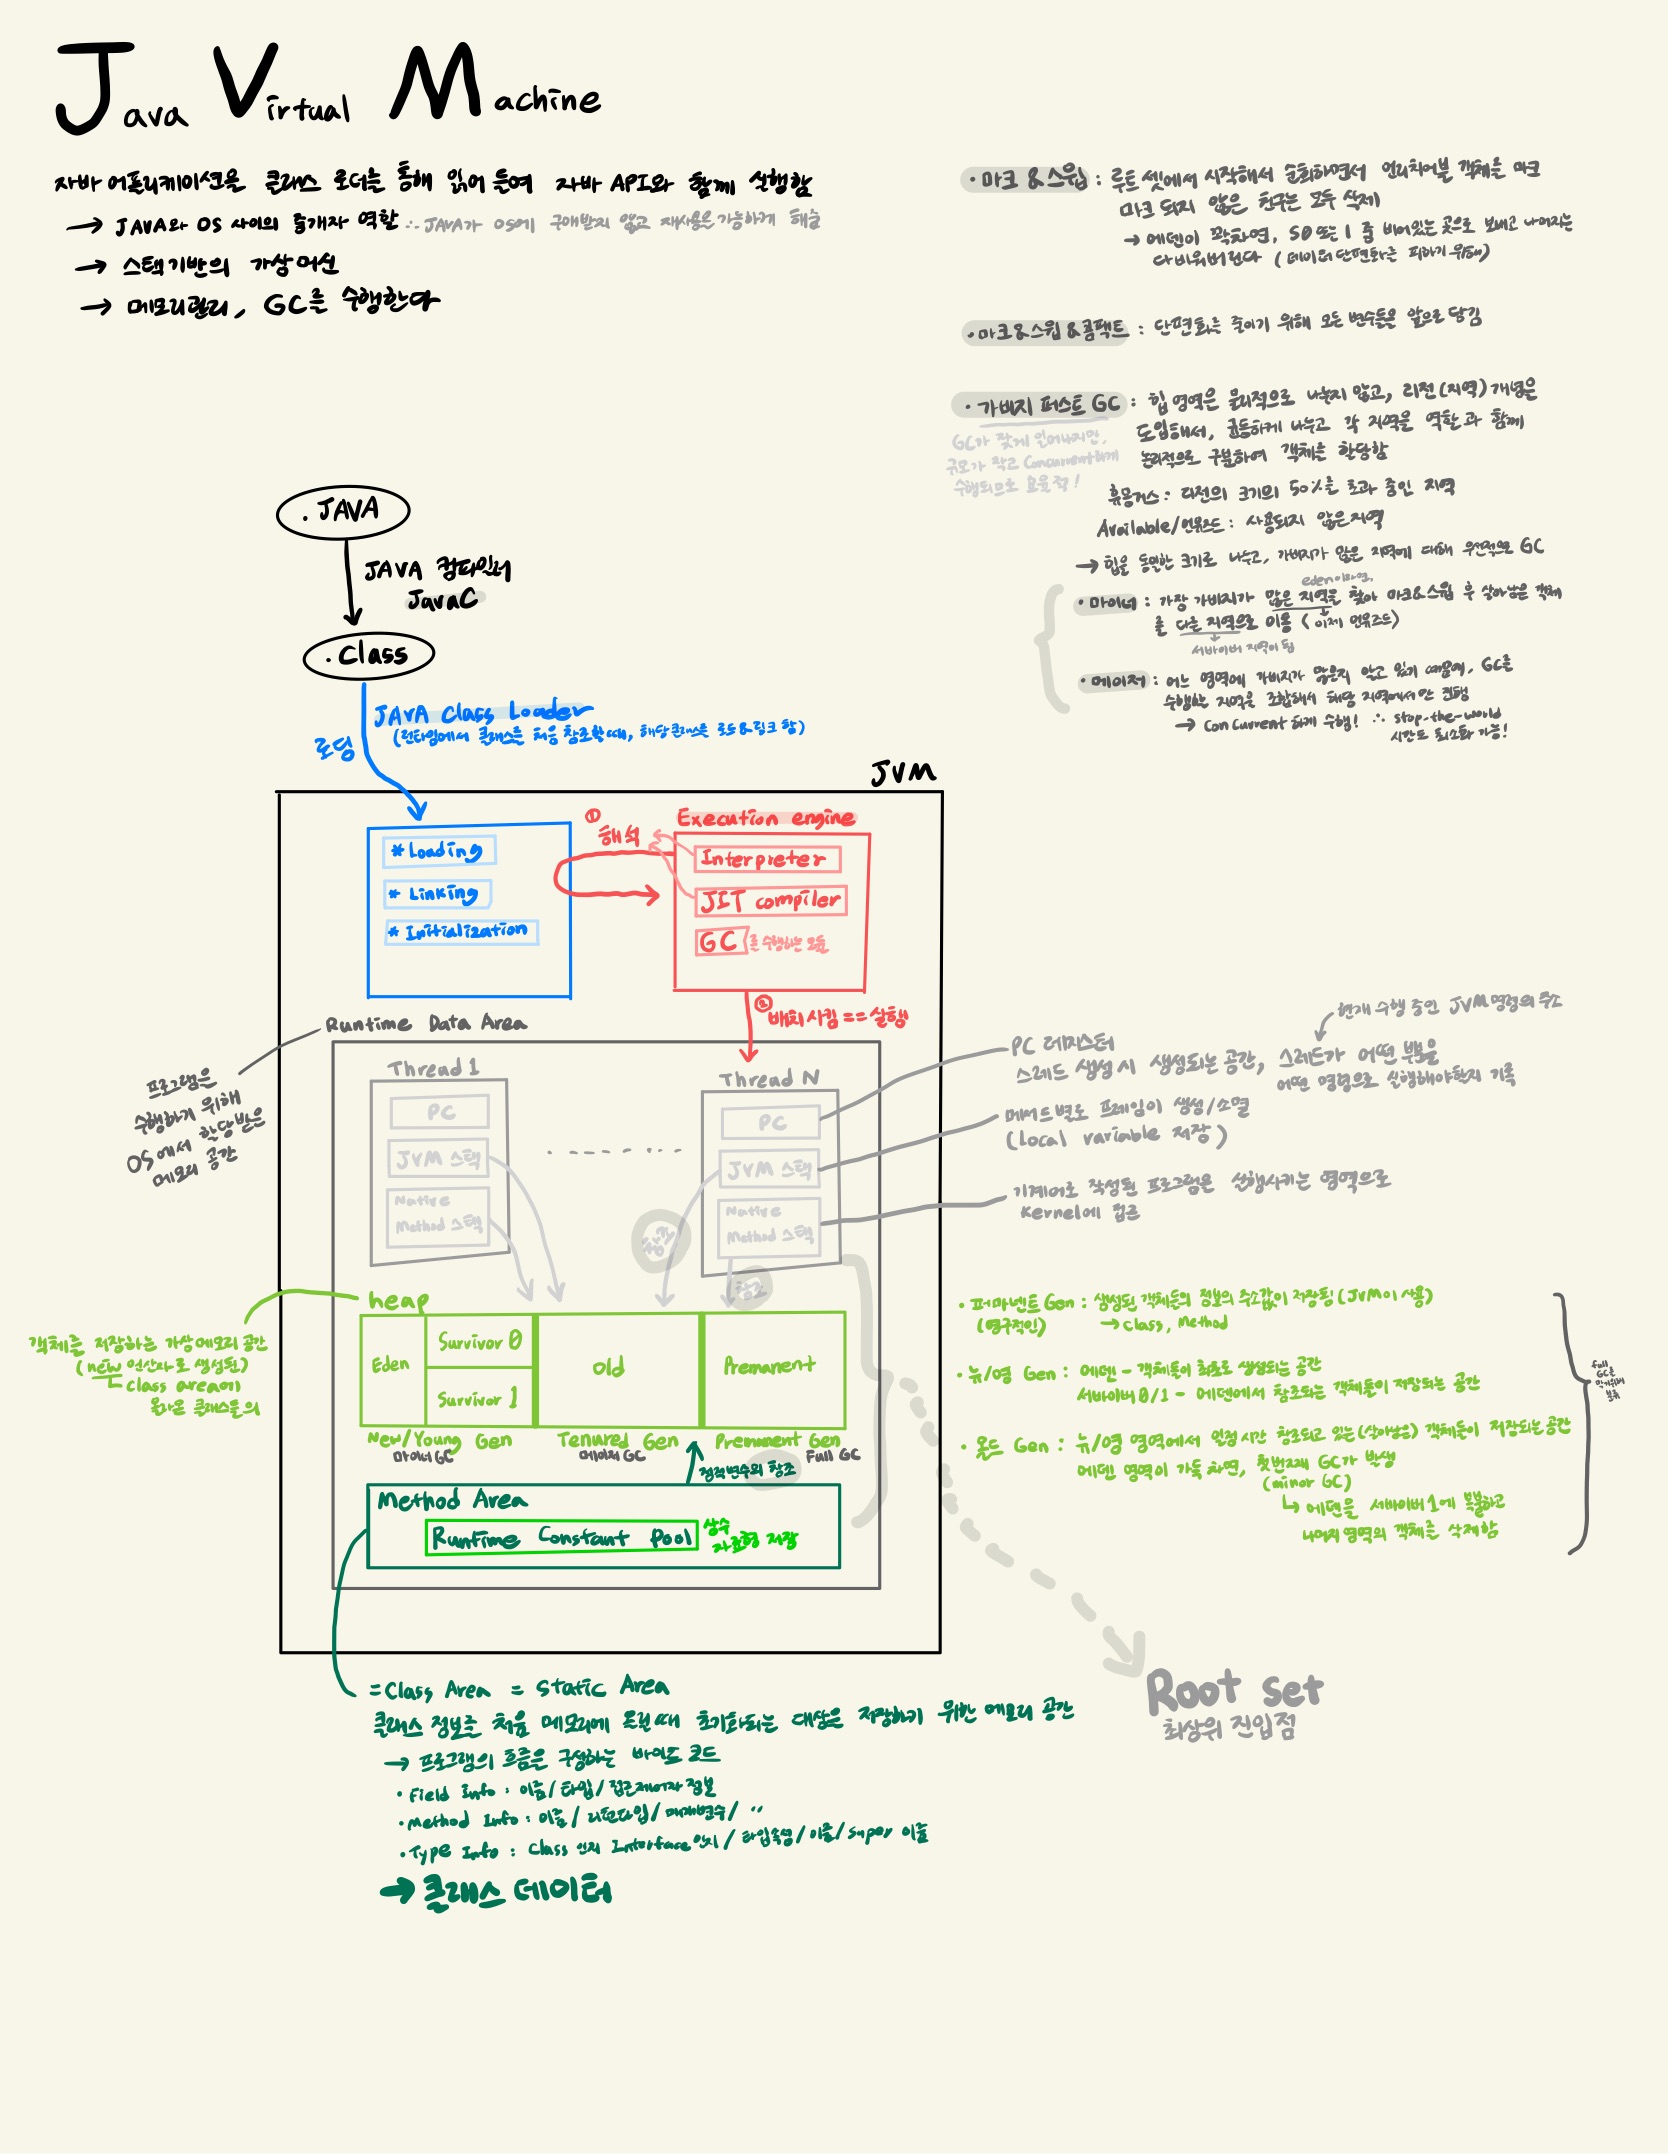 Java Virtual Machine
자바 어플리케이션을 클래스 로더를 통해 읽어 들여 자바 API와 함께 실행함
→ JAVA와 OS 사이의 중개자 역할 ∴ JAVA가 OS에 구애받지 않고 재사용을 가능하게 해줌
→ 스택기반의 가상머신
→ 메모리관리, GC를 수행한다
• 마크 & 스윕 : 루트 셋에서 시작해서 순회하면서 언리치어블 객체를 마크
마크 되지 않은 친구는 모두 삭제
→ 에덴이 꽉차면, S0 또는 1 중 비어있는 곳으로 보내고 나머지는
다 비워버린다 (데이터 단편화를 피하기 위해)
• 마크&스윕&콤팩트 : 단편화를 줄이기 위해 모든 변수들을 앞으로 당김
• 가비지 퍼스트 GC : 힙 영역을 물리적으로 나누지 않고, 리전(지역) 개념을
도입해서, 균등하게 나누고 각 지역을 역할과 함께
논리적으로 구분하여 객체를 할당함
GC가 잦게 일어나지만,
규모가 작고 Concurrent하게
수행되므로 효율적!
휴몽거스 : 리전의 크기의 50%를 초과 중인 지역
Available/언유즈드 : 사용되지 않은 지역
→ 힙을 동일한 크기로 나누고, 가비지가 많은 지역에 대해 우선적으로 GC
eden이라면,
• 마이너 : 가장 가비지가 많은 지역을 찾아 마크&스윕 후 살아남은 객체
를 다른 지역으로 이동 (이제 언유즈드)
서바이버 지역이 됨
• 메이저 : 어느 영역에 가비지가 많은지 알고 있기 때문에, GC를
수행할 지역을 조합해서 해당 지역에서만 진행
→ Concurrent하게 수행! ∴ stop-the-world
시간도 최소화 가능!
.JAVA
JAVA 컴파일러
JavaC
.Class
JAVA Class Loader
(런타임에서 클래스를 처음 참조할 때, 해당 클래스를 로드&링크 함)
로딩
JVM
* Loading
* Linking
* Initialization
① 해석
Execution engine
Interpreter
JIT compiler
GC 를 수행하는 모듈
② 배치시킴 == 실행
Runtime Data Area
프로그램을
수행하기 위해
OS에서 할당받은
메모리 공간
Thread 1
PC
JVM 스택
Native
Method 스택
Thread N
PC
JVM 스택
Native
Method 스택
참조
참조
현재 수행 중인 JVM 명령의 주소
PC 레지스터
스레드 생성 시 생성되는 공간, 스레드가 어떤 부분을
어떤 명령으로 실행해야할지 기록
메서드별로 프레임이 생성/소멸
(Local variable 저장)
기계어로 작성된 프로그램을 실행시키는 영역으로
Kernel에 접근
heap
객체를 저장하는 가상메모리 공간
(new 연산자로 생성된)
class area에
올라온 클래스들의
Eden
Survivor 0
Survivor 1
Old
Premanent
New/Young Gen
마이너 GC
Tenured Gen
메이저 GC
Premanent Gen
Full GC
정적변수의 참조
Method Area
Runtime Constant Pool
상수
자료형 저장
• 퍼머넌트 Gen : 생성된 객체들의 정보의 주소값이 저장됨 (JVM이 사용)
(영구적인) → class, Method
• 뉴/영 Gen : 에덴 - 객체들이 최초로 생성되는 공간
서바이버 0/1 - 에덴에서 참조되는 객체들이 저장되는 공간
• 올드 Gen : 뉴/영 영역에서 일정 시간 참조되고 있는(살아남은) 객체들이 저장되는 공간
에덴 영역이 가득 차면, 첫번째 GC가 발생
(minor GC)
↳ 에덴을 서바이버1에 복붙하고
나머지 영역의 객체를 삭제함
Full
GC를
Root set
최상위 진입점
= Class Area = Static Area
클래스 정보를 처음 메모리에 올릴 때 초기화되는 대상을 저장하기 위한 메모리 공간
→ 프로그램의 흐름을 구성하는 바이트 코드
• Field Info : 이름/타입/접근제어자 정보
• Method Info : 이름/리턴타입/매개변수/ "
• Type Info : Class 인지 Interface인지/타입속성/이름/super 이름
→ 클래스 데이터